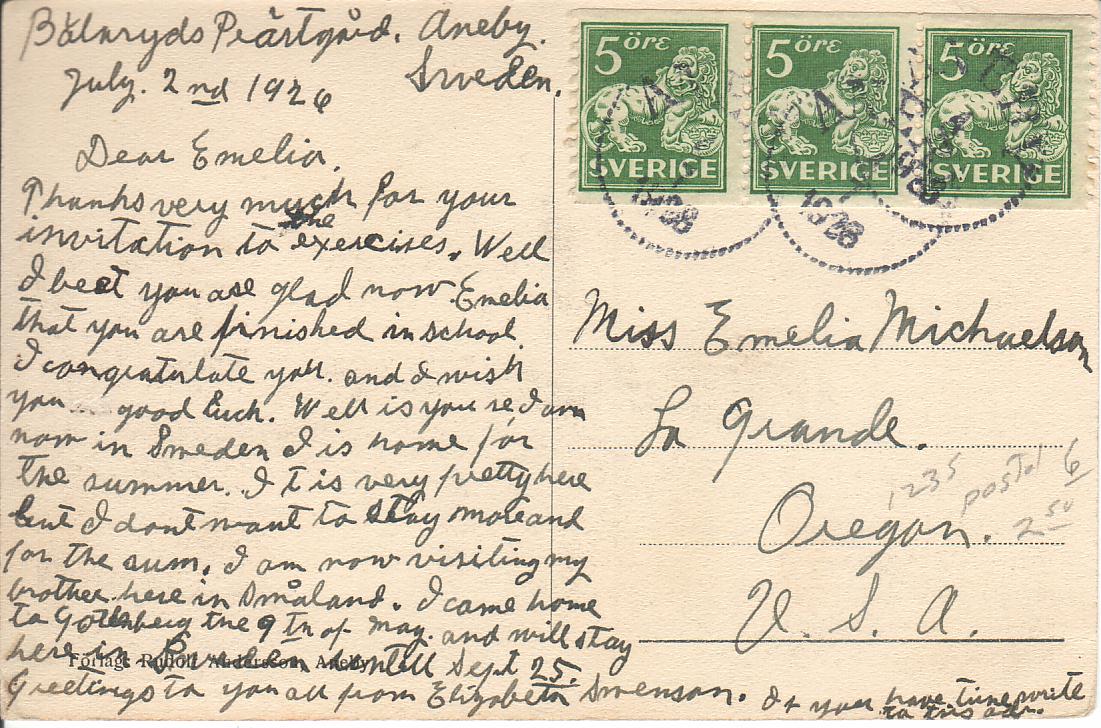 Bälaryds Prästgård. Aneby.
Sweden.
July. 2nd 1926
Dear Emelia.
Thanks very much for your
invitation to the exercises. Well
I beet you are glad now Emelia
that you are finished in school.
I congratulate you. and I wish
you good luck. Well is you se, I am
now in Sweden I is home for
the summer. It is very pretty here
but I dont want to stay more and
for the sum. I am now visiting my
brother here in Småland. I came home
to Gothenberg the 9th of May. and will stay
here in Sweden Sept 25.
Greetings to you all from Elizabeth Swenson. If you have time write
to this adr.
Förlag: Rudolf Andersson, Aneby
5 öre 5 öre 5 öre
SVERIGE SVERIGE SVERIGE
1928
Miss Emelia Michaelson
La Grande.
Oregon.
U. S. A.
1235
postal 6
2 50